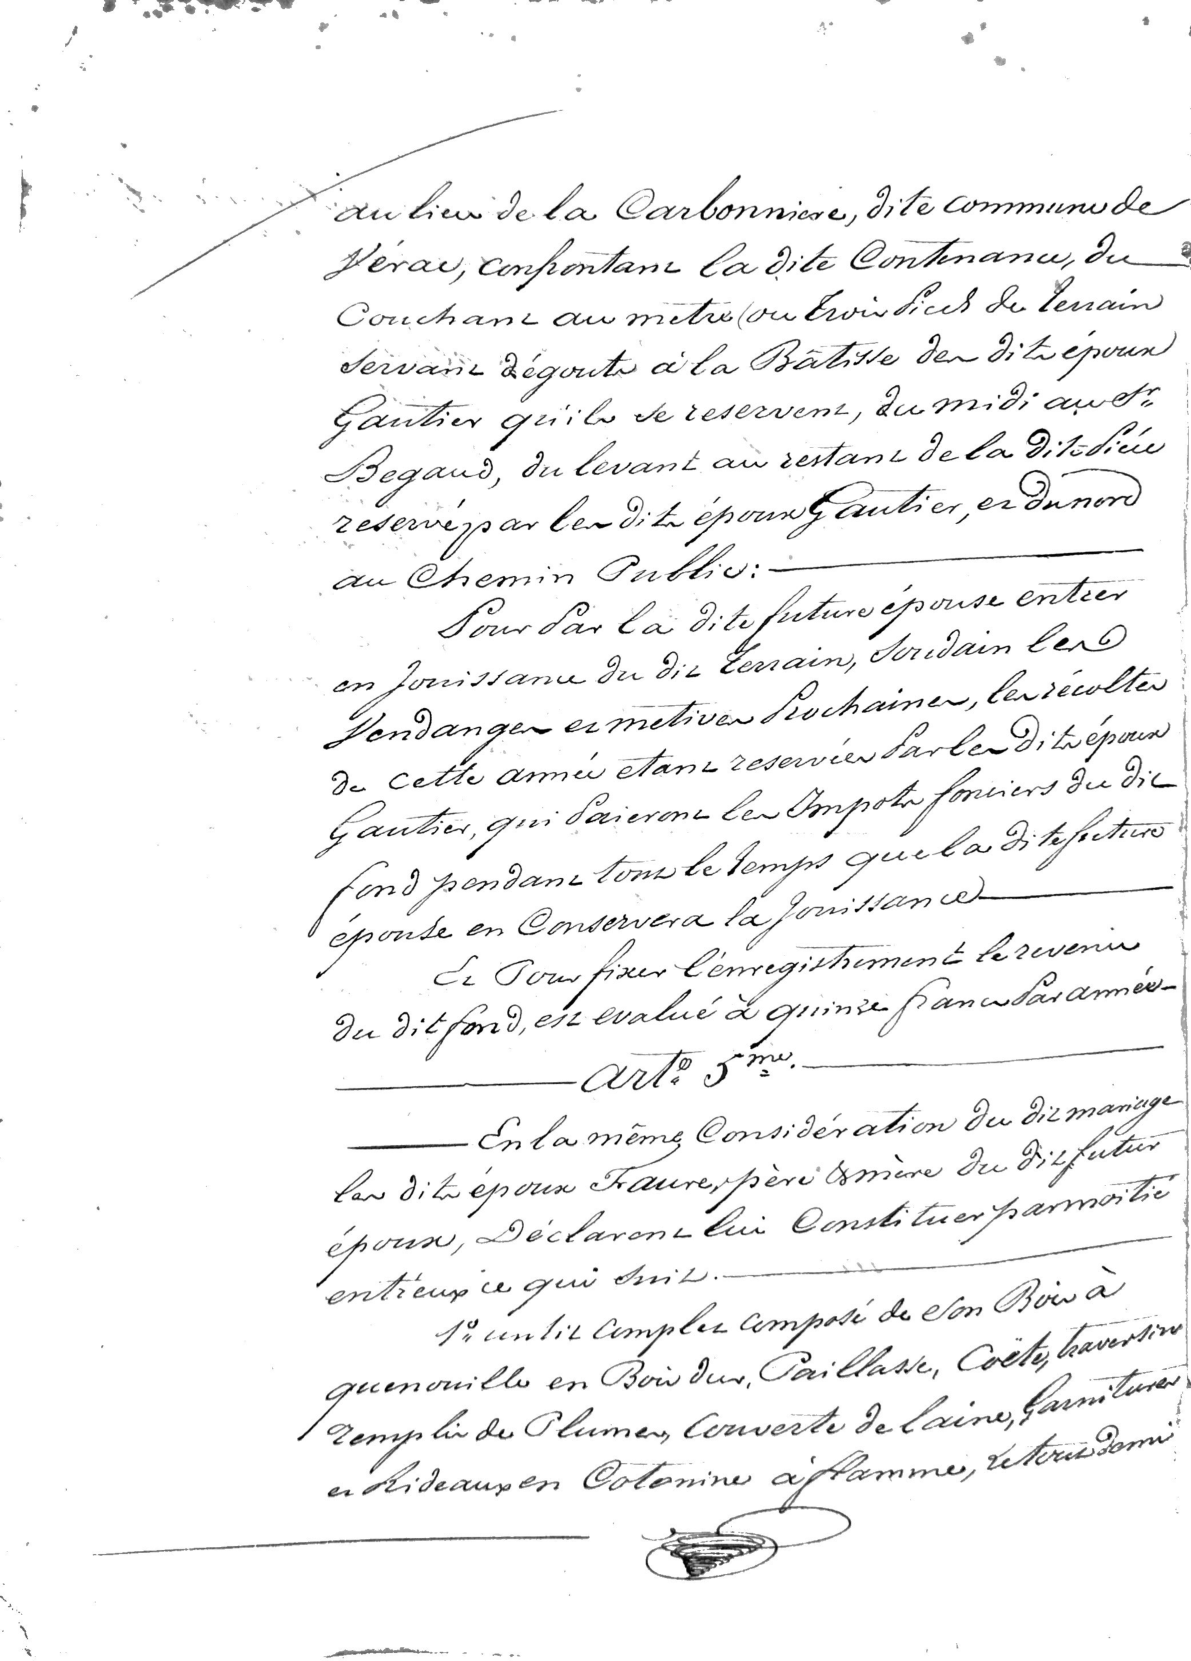 au lieu de la Carbonniere, dite commune de
Vérac, confrontant la dite Contenance, du
Couchant au mètre (ou trois Pieds de terrain
servant dégouts à la Bâtisse des dits époux
Gautier qu'ils se reservent, du midi au Sr.
Begaud, du levant au restant de la dite Pièce
reservé par les dits époux Gautier, et du nord
au Chemin Public: —
Pour Par la dite future épouse entrer
en Jouissance du dit terrain, soudain les
Vendanges et metives Prochaines, les récoltes
de cette année etant reservées Par les dits époux
Gautier, qui Paieront les Impots fonciers du dit
fond pendant tout le temps que la dite future
épouse en Conservera la Jouissance —
Et Pour fixer l'enregistrement le revenu
du dit fond, est evalué à quinze francs Par année -
— Arto. 5me. —
— En la même Considération du dit mariage
les dits époux Faure, père & mère du dit futur
époux, Déclarent lui Constituer par moitié
entr'eux ce qui suit. —
1o. un lit complet composé de son Bois à
quenouille en Bois dur, Paillasse, Coëte, traversin
remplis de Plumes, Couverte de laine, Garnitures
et Rideaux en Cotonine à flamme, le tout demi